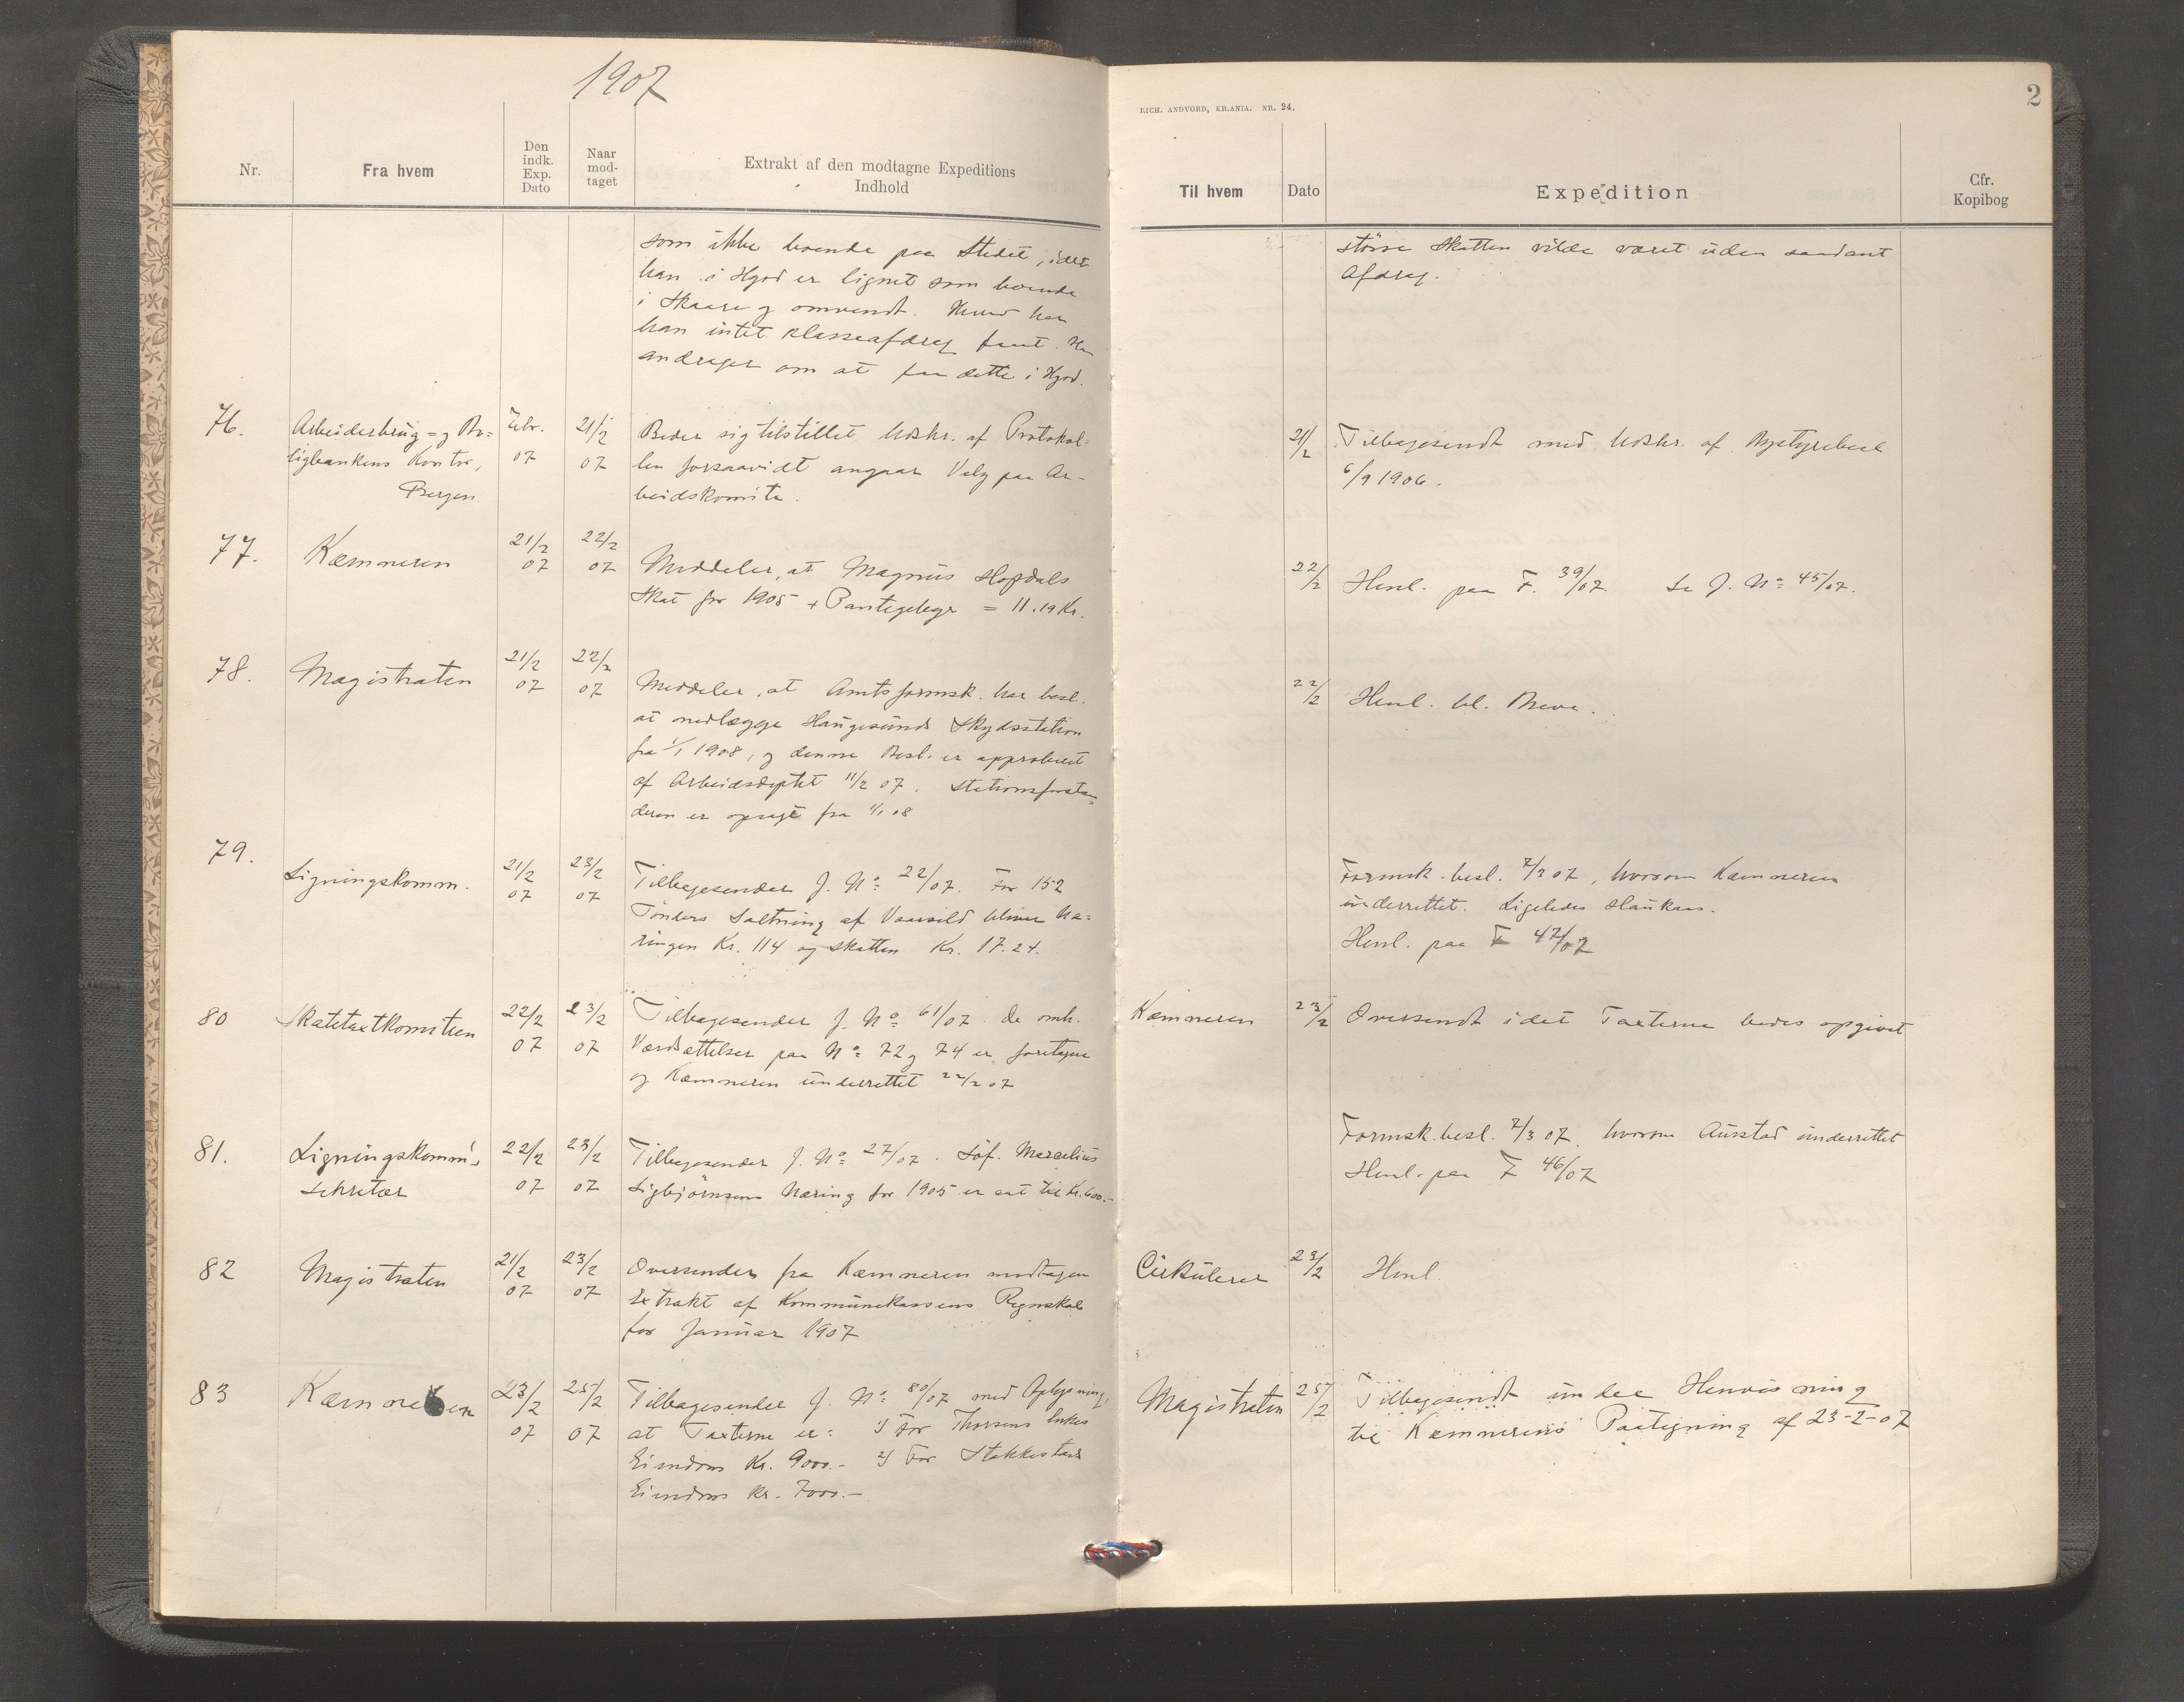 1907
Nr.
Fra hvem
Den
indk.
Exp.
Dato
Naar
mod-
taget
Extrakt af den modtagne Expeditions
Indhold
som ikke boende paa Stedet, idet
han i Hgsd er lignet som boende
i Skaare og omvendt. Herved har
han intet Klasseafdrag faaet. Han
andrager om at faa dette i Hgsd.
76.
Arbeiderbrug- og Bo-
ligbankens Kontor,
Bergen.
Febr.
07
21/2
07
Beder sig tilstillet Udskr. af Protokol-
len forsaavidt angaar Valg paa Ar-
beidskomite.
77.
Kæmneren
21/2
07
22/2
07
Meddeler, at Magnus Hopdals
Skat for 1905 + Pantegebyr = 11.19 Kr.
78.
Magistraten
21/2
07
22/2
07
Meddeler, at Amtsformsk. har besl.
at nedlægge Haugesunds Skydsstation
fra 1/1 1908, og denne Besl. er approberet
af Arbeidsdeptet 11/2 07. Stationsforstan-
deren er opsagt fra 1/1 08
79.
Ligningskomm.
21/2
07
23/2
07
Tilbagesender J. No 22/07. For 152
Tønders Saltning af Vaarsild bliver Næ-
ringen Kr. 114 og Skatten Kr. 17.24.
80
Skatetaxtkomiteen
22/2
07
23/2
07
Tilbagesender J. No 61/07. De omh.
Værdsættelser paa No 72 og 74 er foretagne
og Kæmneren underrettet 22/2 07
81.
Ligningskomm's
Sekretær
22/2
07
23/2
07
Tilbagesender J. No 27/07. Søf. Marcelius
Sigbjørnsens Næring for 1905 er sat til Kr. 600.-
82
Magistraten
21/2
07
23/2
07
Oversender fra Kæmneren modtagen
Extrakt af Kommunekassens Regnskab
for Januar 1907
83
Kæmneren
23/2
07
25/2
07
Tilbagesender J. No 80/07 med Oplysning,
at Taxterne er: 1) For Thorsens Enkes
Eiendom Kr. 9000.- 2) For Stakkestads
Eiendom Kr. 7000.-
RICH. ANDVORD, KR.ANIA. NR. 24.
2
Til hvem
Dato
Expedition
Cfr.
Kopibog
større Skatten vilde været uden saadant
Afdrag.
21/2
Tilbagesendt med Udskr. af Bystyrebesl
6/9 1906.
22/2
Henl. paa F. 39/07. Se J. No 45/07.
22/2
Henl. bl. Breve.
Formsk. besl. 7/3 07, hvorom Kæmneren
underrettet. Ligeledes Haukaas.
Henl. paa F 47/07
Kæmneren
23/2
Oversendt idet Taxterne bedes opgivet
Formsk. besl. 7/3 07. hvorom Austad underrettet
Henl. paa F 46/07
Cirkulerer
23/2
Henl.
Magistraten
25/2
Tilbagesendt under Henvisning
til Kæmnerens Paategning af 23-2-07